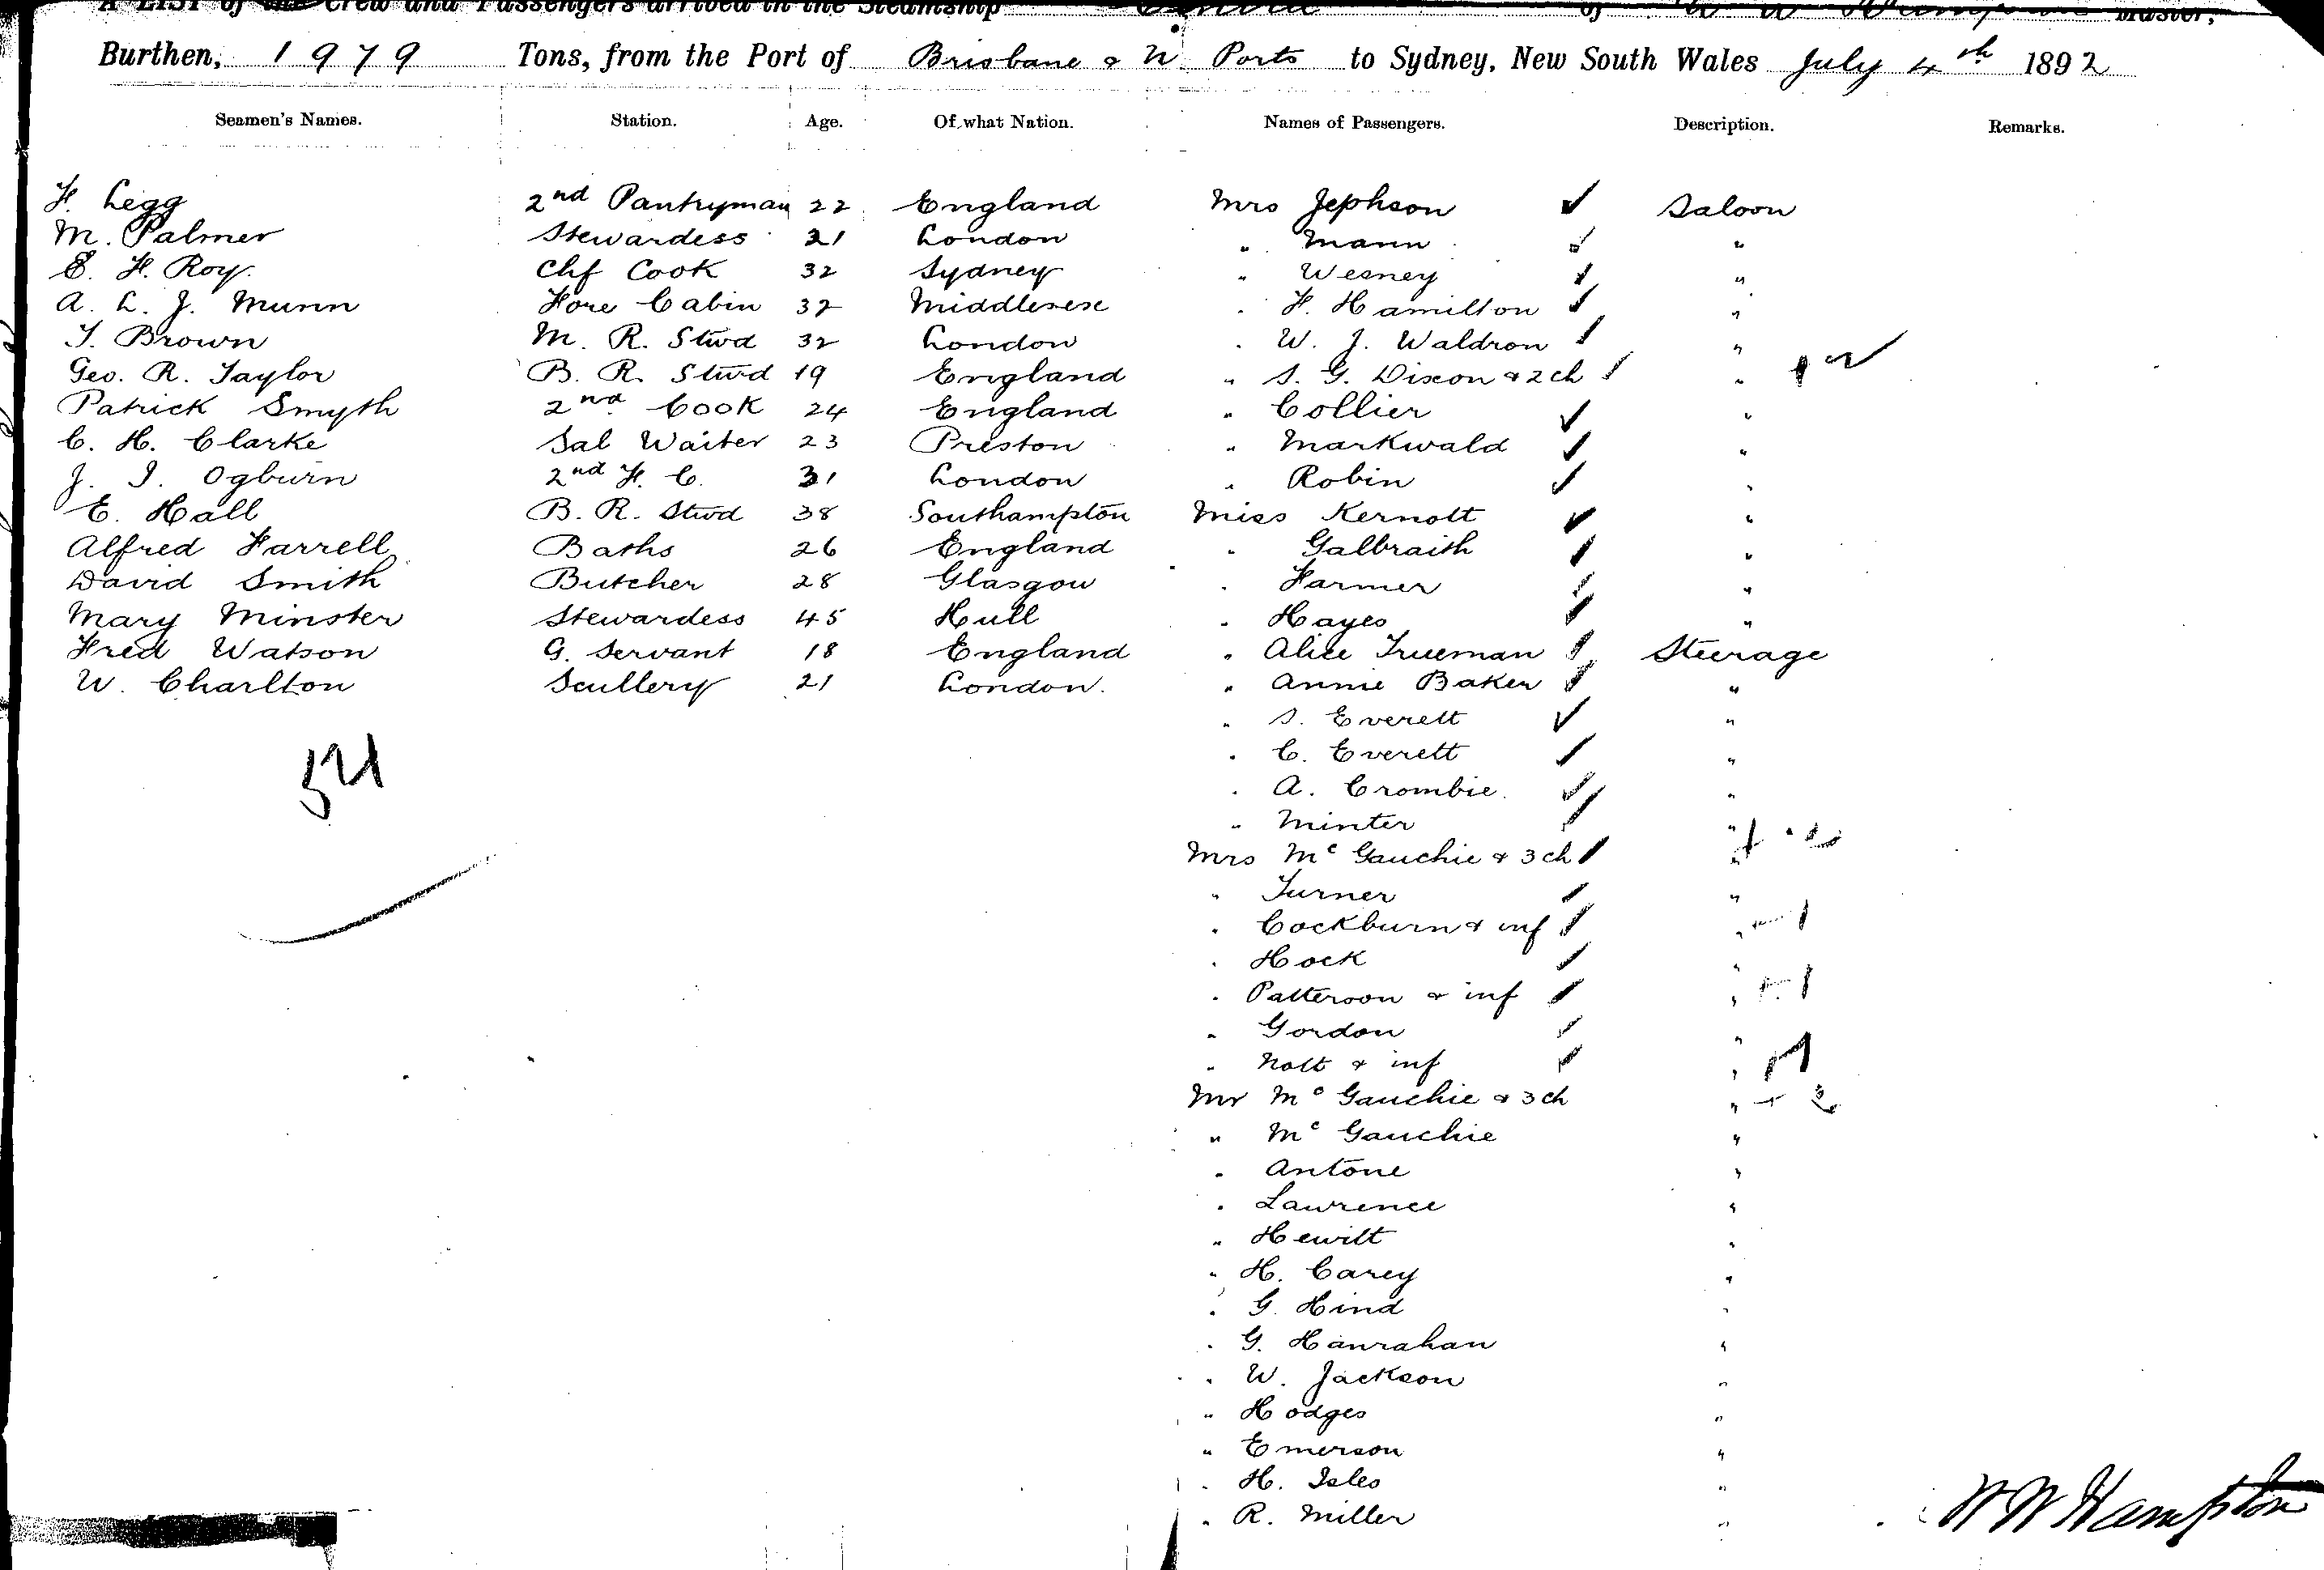 A LIST of the Crew and Passengers arrived in the Steamship of Master,
Burthen, 1979 Tons, from the Port of Brisbane & N. Ports to Sydney, New South Wales July 4th 1892
Seamen's Names. Station. Age. Of what Nation. Names of Passengers. Description. Remarks.
F. Legg 2nd Pantryman 22 England Mrs Jephson ✓ Saloon
M. Palmer Stewardess 21 London " Mann ✓ "
E. F. Roy. Chf Cook 32 Sydney " Wesney ✓ "
A. L. J. Munn Fore Cabin 32 Middlesex " F. Hamilton ✓ "
T. Brown M. R. Stwd 32 London " W. J. Waldron ✓ "
Geo. R. Taylor B. R. Stwd 19 England " S. G. Dixon & 2 ch ✓ "
Patrick Smyth 2nd Cook 24 England " Collier ✓ "
C. H. Clarke Sal Waiter 23 Preston " Markwald ✓ "
J. I. Ogburn 2nd F. C. 31 London " Robin ✓ "
E. Hall B. R. Stwd 38 Southampton Miss Kernott ✓ "
Alfred Farrell Baths 26 England " Galbraith ✓ "
David Smith Butcher 28 Glasgow " Farmer ✓ "
Mary Minster Stewardess 45 Hull " Hayes ✓ "
Fred Watson G. Servant 18 England " Alice Trueman ✓ Steerage
W. Charlton Scullery 21 London. " Annie Baker ✓ "
" S. Everett ✓ "
" C. Everett ✓ "
" A. Crombie. ✓ "
" Minter ✓ "
Mrs McGauchie & 3 ch ✓ "
" Turner ✓ "
" Cockburn & inf ✓ "
" Hock ✓ "
" Patterson & inf ✓ "
" Gordon ✓ "
" Nott & inf ✓ "
Mr McGauchie & 3 ch "
" McGauchie "
" Antone "
" Lawrence "
" Hewitt "
" H. Carey "
" G. Hind "
" G. Hanrahan "
" W. Jackson "
" Hodges "
" Emerson "
" H. Isles "
" R. Miller "
W W Hampton